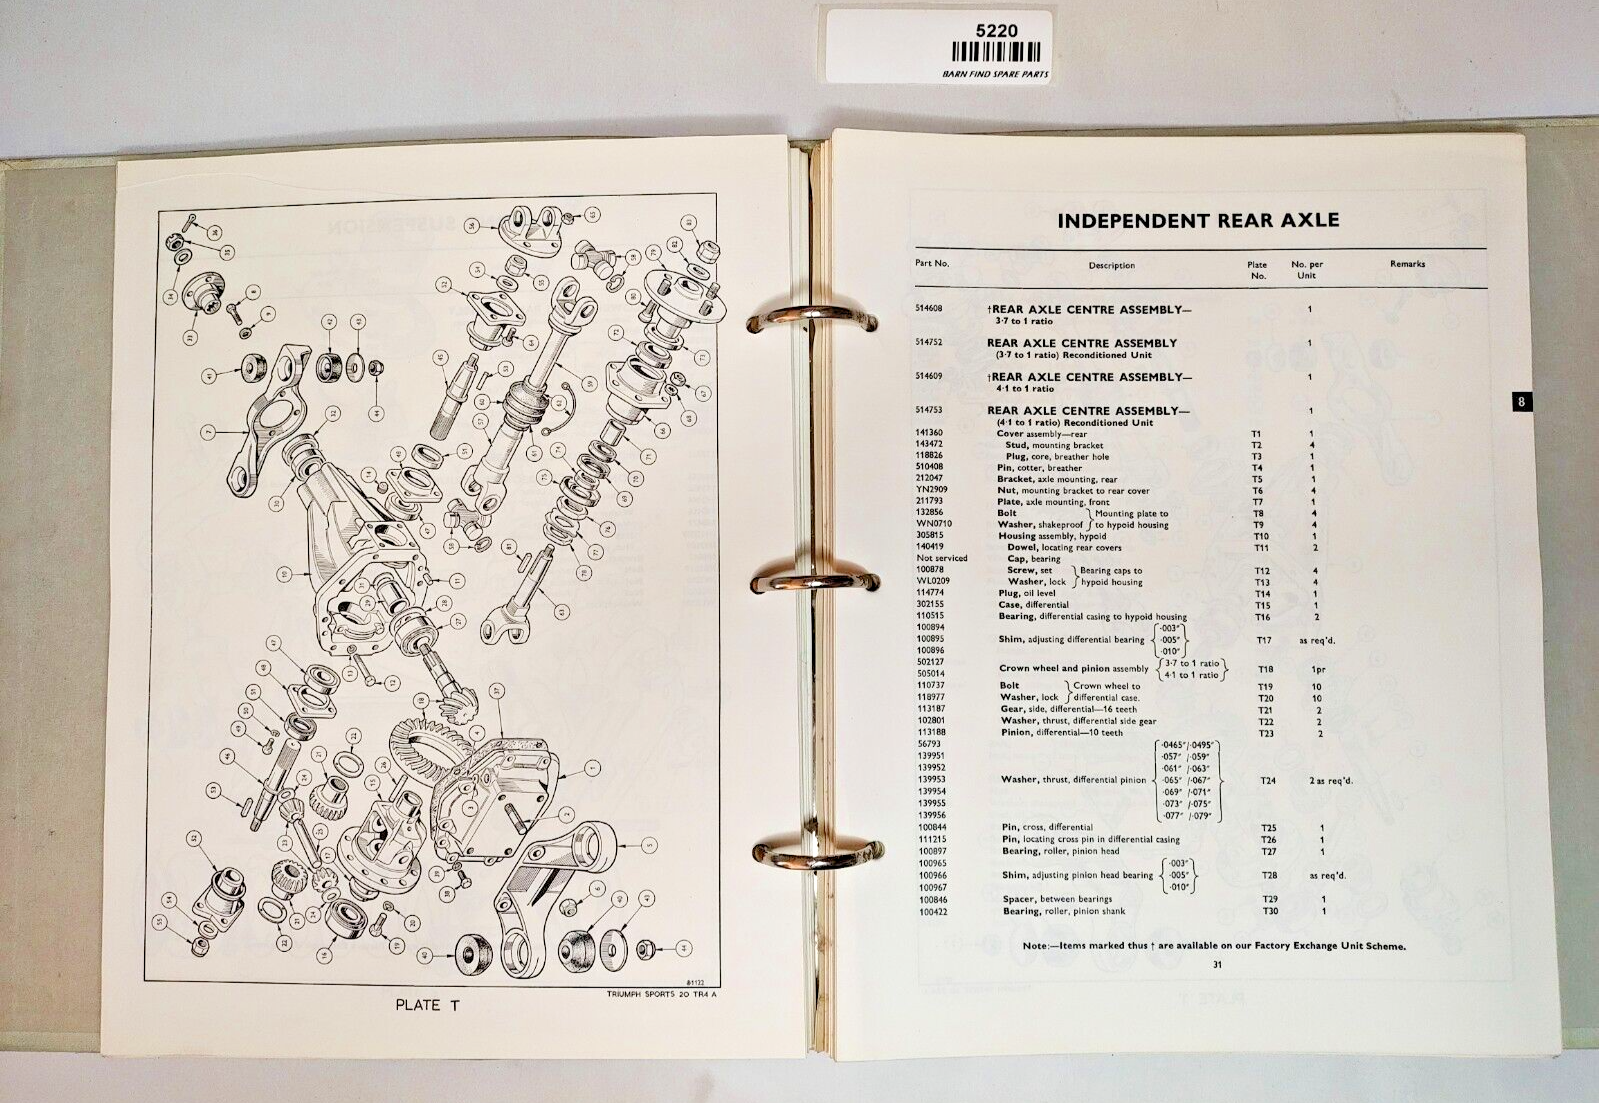 5220
BARN FIND SPARE PARTS
81122
TRIUMPH SPORTS 20 TR4 A
PLATE T
INDEPENDENT REAR AXLE
Part No. Description Plate No. No. per Unit Remarks
514608 †REAR AXLE CENTRE ASSEMBLY— 1
3·7 to 1 ratio
514752 REAR AXLE CENTRE ASSEMBLY 1
(3·7 to 1 ratio) Reconditioned Unit
514609 †REAR AXLE CENTRE ASSEMBLY— 1
4·1 to 1 ratio
8
514753 REAR AXLE CENTRE ASSEMBLY— 1
(4·1 to 1 ratio) Reconditioned Unit
141360 Cover assembly—rear T1 1
143472 Stud, mounting bracket T2 4
118826 Plug, core, breather hole T3 1
510408 Pin, cotter, breather T4 1
212047 Bracket, axle mounting, rear T5 1
YN2909 Nut, mounting bracket to rear cover T6 4
211793 Plate, axle mounting, front T7 1
132856 Bolt Mounting plate to T8 4
WN0710 Washer, shakeproof to hypoid housing T9 4
305815 Housing assembly, hypoid T10 1
140419 Dowel, locating rear covers T11 2
Not serviced Cap, bearing
100878 Screw, set Bearing caps to T12 4
WL0209 Washer, lock hypoid housing T13 4
114774 Plug, oil level T14 1
302155 Case, differential T15 1
110515 Bearing, differential casing to hypoid housing T16 2
100894 ·003"
100895 Shim, adjusting differential bearing ·005" T17 as req'd.
100896 ·010"
502127 3·7 to 1 ratio
Crown wheel and pinion assembly T18 1pr
505014 4·1 to 1 ratio
110737 Bolt Crown wheel to T19 10
118977 Washer, lock differential case. T20 10
113187 Gear, side, differential—16 teeth T21 2
102801 Washer, thrust, differential side gear T22 2
113188 Pinion, differential—10 teeth T23 2
56793 ·0465"/·0495"
139951 ·057" /·059"
139952 ·061" /·063"
139953 Washer, thrust, differential pinion ·065" /·067" T24 2 as req'd.
139954 ·069" /·071"
139955 ·073" /·075"
139956 ·077" /·079"
100844 Pin, cross, differential T25 1
111215 Pin, locating cross pin in differential casing T26 1
100897 Bearing, roller, pinion head T27 1
100965 ·003"
100966 Shim, adjusting pinion head bearing ·005" T28 as req'd.
100967 ·010"
100846 Spacer, between bearings T29 1
100422 Bearing, roller, pinion shank T30 1
Note:—Items marked thus † are available on our Factory Exchange Unit Scheme.
31